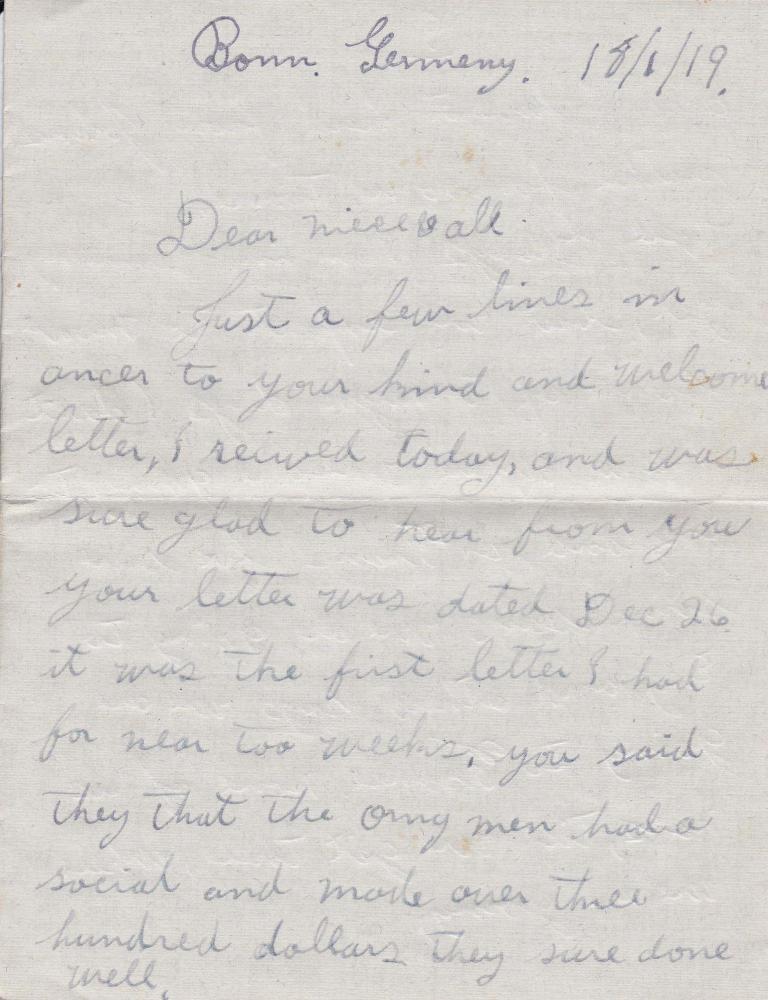 Bonn. Germany. 18/1/19.
Dear niece & all.
Just a few lines in
ancer to your kind and welcome
letter, I reived today, and was
sure glad to hear from you
your letter was dated Dec 26
it was the first letter I had
for near too weeks, you said
they that the omg men had a
social and made over three
hundred dollars they sure done
well.